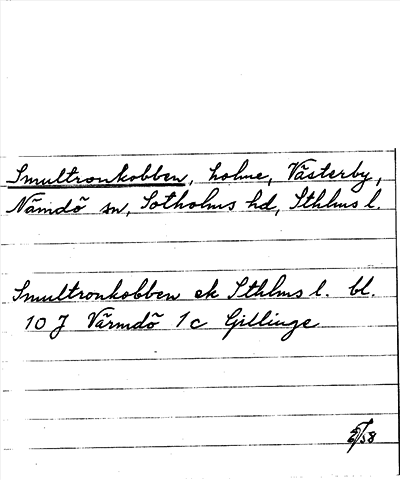 Smultronkobben, holme, Västerby,
Nämdö sn, Sotholms hd, Sthlms l.
Smultronkobben ek Sthlms l. bl.
10 J Värmdö 1c Gillinge